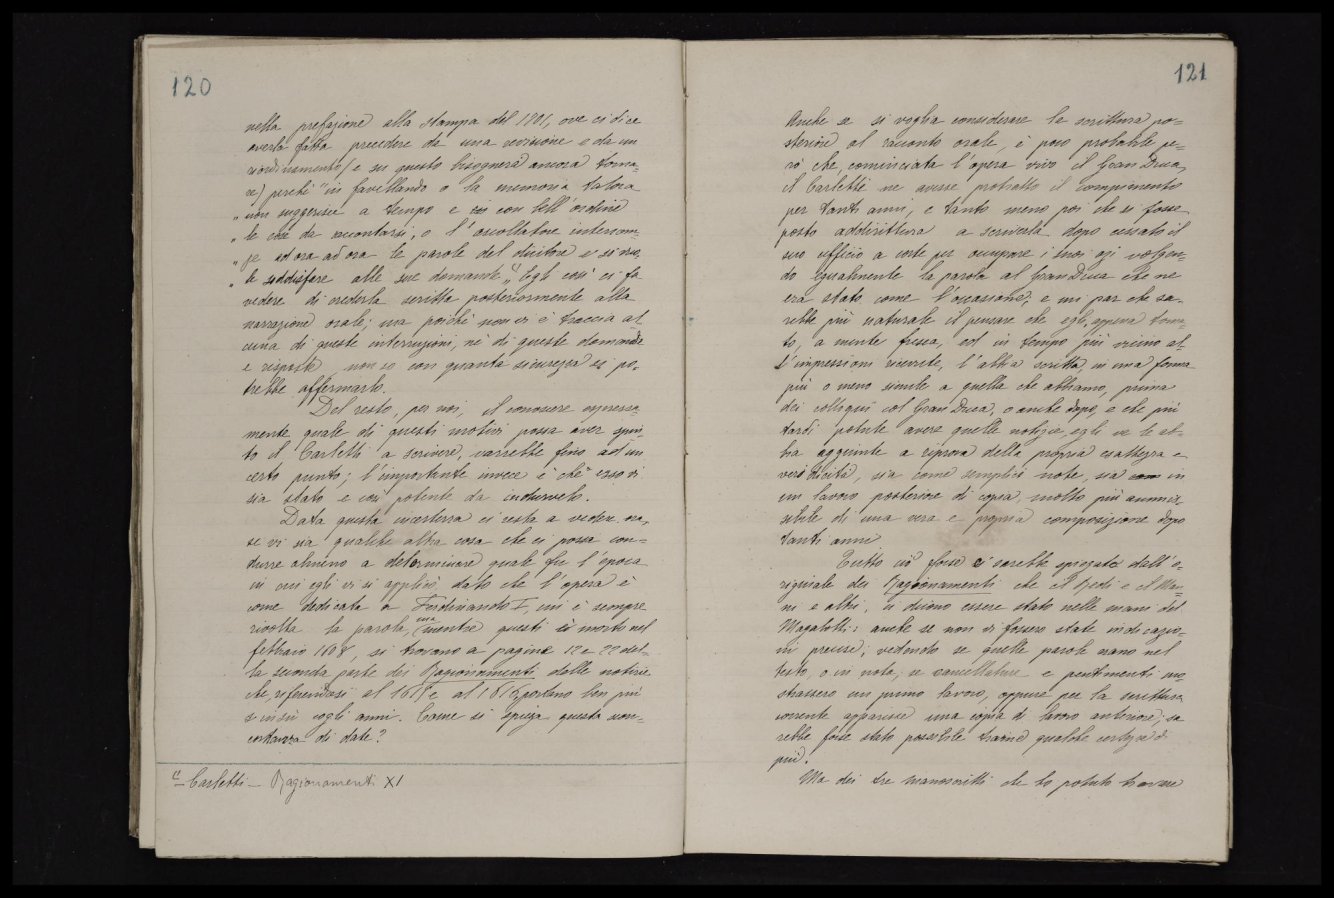 120
nella prefazione alla stampa del 1701, ove ci dice
averla fatta precedere da una revisione e da un
riordinamento (e su questo bisognerà ancora torna-
re) perchè "in favellando o la memoria talora
"non suggerisce a tempo e con bell'ordine
"le cose da raccontarsi, o l'ascoltatore interrom-
"pe ad ora ad ora le parole del dicitore e si vuo-
"le soddisfare alle sue domande". Egli così ci fa
vedere di crederla scritta posteriormente alla
narrazione orale; ma poichè non vi è traccia al-
cuna di queste interruzioni, nè di queste domande
e risposte, non so con quanta sicurezza si po-
trebbe affermarlo.
Del resto, per noi, il conoscere espressa-
mente quale di questi motivi possa aver spin-
to il Carletti a scrivere, varrebbe fino ad un
certo punto; l'importante invece è che esso vi
sia stato e così potente da indurvelo.
Data questa incertezza ci resta a vedere ora,
se vi sia qualche altra cosa che ci possa con-
durre almeno a determinare quale fu l'epoca
in cui egli vi si applicò, dato che l'opera è
come dedicata a Ferdinando I, cui è sempre
rivolta la parola, ma mentre questi è morto nel
febbraio 1608, si trovano a pagine 12 e 22 del-
la seconda parte dei Ragionamenti delle notizie
che, referendosi al 1618 e al 1616, portano ben più
in su cogli anni. Come si spiega questa non-
costanza di date?
Carletti - Ragionamenti XI
121
Anche se si voglia considerare la scrittura po-
steriore al racconto orale, è poco probabile pe-
rò che, cominciata l'opera vivo il Gran Duca,
il Carletti ne avesse protratto il compimento
per tanti anni, e tanto meno poi che si fosse
posto addirittura a scriverla dopo cessato il
suo ufficio a corte per occupare i suoi ozi volgen-
do egualmente la parola al Gran Duca che ne
era stato come l'occasione; e mi par che sa-
rebbe più naturale il pensare che egli, appena torna-
to, a mente fresca, ed in tempo più vicino al-
l'impressioni ricevute, l'abbia scritta, in una forma
più o meno simile a quella che abbiamo, prima
dei colloqui col Gran Duca, o anche dopo, e che più
tardi potute avere quelle notizie egli ve le ab-
bia aggiunte a riprova della propria esattezza e
veridicità, sia come semplici note, sia in
un lavoro posteriore di copia, molto più ammis-
sibile di una vera e propria composizione dopo
tanti anni.
Tutto ciò forse ci sarebbe spiegato dall'o-
riginale dei Ragionamenti che il Redi e il Man-
ni e altri, ci dicono essere stato nelle mani del
Magalotti: anche se non vi fossero state indicazio-
ni precise; vedendo se quelle parole erano nel
testo, o in nota, se cancellature e pentimenti mo-
strassero un primo lavoro, oppure per la scrittura
corrente apparisse una copia di lavoro anteriore; sa-
rebbe forse stato possibile trarne qualche certezza di
più.
Ma dei tre manoscritti che ho potuto trovare